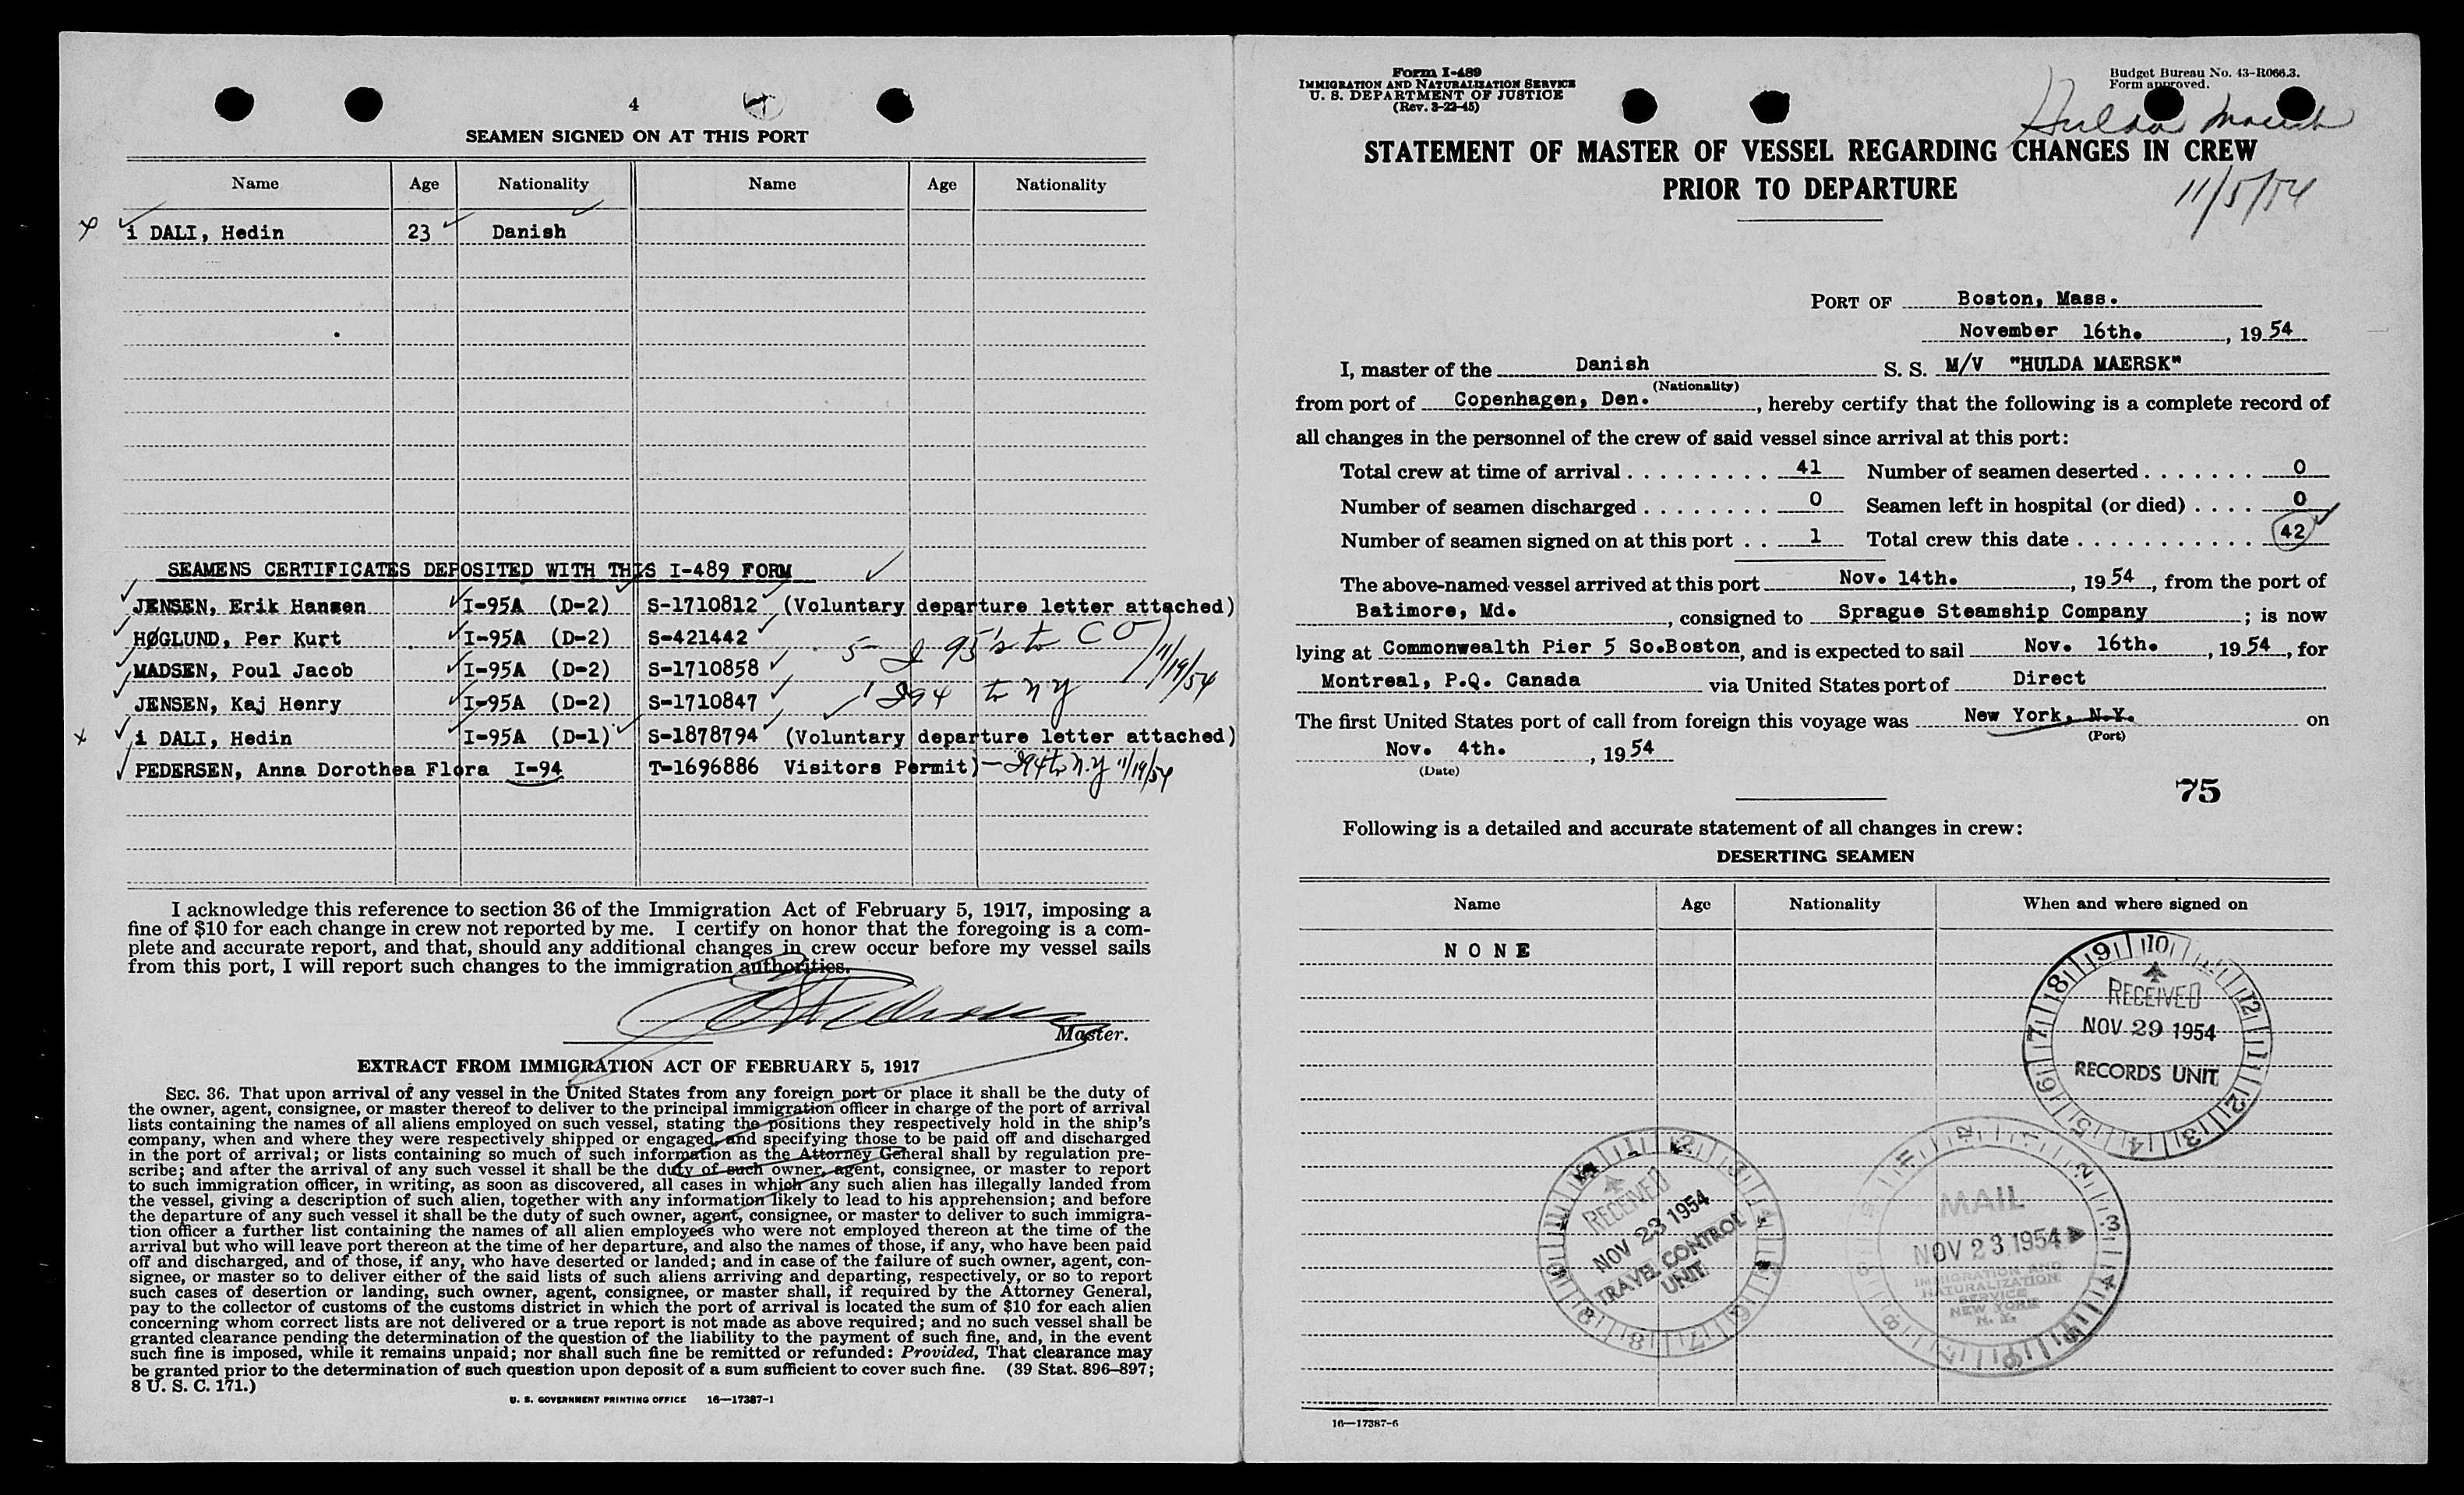 4
SEAMEN SIGNED ON AT THIS PORT
Name Age Nationality Name Age Nationality
i DALI, Hedin 23 Danish
SEAMENS CERTIFICATES DEPOSITED WITH THIS I-489 FORM
JENSEN, Erik Hansen I-95A (D-2) S-1710812 (Voluntary departure letter attached)
HØGLUND, Per Kurt I-95A (D-2) S-421442
5 I 95's to CO 11/19/54
MADSEN, Poul Jacob I-95A (D-2) S-1710858
1 I94 to NY
JENSEN, Kaj Henry I-95A (D-2) S-1710847
i DALI, Hedin I-95A (D-1) S-1878794 (Voluntary departure letter attached)
PEDERSEN, Anna Dorothea Flora I-94 T-1696886 Visitors Permit) — I94 to N.Y 11/19/54
I acknowledge this reference to section 36 of the Immigration Act of February 5, 1917, imposing a
fine of $10 for each change in crew not reported by me. I certify on honor that the foregoing is a com-
plete and accurate report, and that, should any additional changes in crew occur before my vessel sails
from this port, I will report such changes to the immigration authorities.
Master.
EXTRACT FROM IMMIGRATION ACT OF FEBRUARY 5, 1917
SEC. 36. That upon arrival of any vessel in the United States from any foreign port or place it shall be the duty of
the owner, agent, consignee, or master thereof to deliver to the principal immigration officer in charge of the port of arrival
lists containing the names of all aliens employed on such vessel, stating the positions they respectively hold in the ship's
company, when and where they were respectively shipped or engaged, and specifying those to be paid off and discharged
in the port of arrival; or lists containing so much of such information as the Attorney General shall by regulation pre-
scribe; and after the arrival of any such vessel it shall be the duty of such owner, agent, consignee, or master to report
to such immigration officer, in writing, as soon as discovered, all cases in which any such alien has illegally landed from
the vessel, giving a description of such alien, together with any information likely to lead to his apprehension; and before
the departure of any such vessel it shall be the duty of such owner, agent, consignee, or master to deliver to such immigra-
tion officer a further list containing the names of all alien employees who were not employed thereon at the time of the
arrival but who will leave port thereon at the time of her departure, and also the names of those, if any, who have been paid
off and discharged, and of those, if any, who have deserted or landed; and in case of the failure of such owner, agent, con-
signee, or master so to deliver either of the said lists of such aliens arriving and departing, respectively, or so to report
such cases of desertion or landing, such owner, agent, consignee, or master shall, if required by the Attorney General,
pay to the collector of customs of the customs district in which the port of arrival is located the sum of $10 for each alien
concerning whom correct lists are not delivered or a true report is not made as above required; and no such vessel shall be
granted clearance pending the determination of the question of the liability to the payment of such fine, and, in the event
such fine is imposed, while it remains unpaid; nor shall such fine be remitted or refunded: Provided, That clearance may
be granted prior to the determination of such question upon deposit of a sum sufficient to cover such fine. (39 Stat. 896–897;
8 U. S. C. 171.)
U. S. GOVERNMENT PRINTING OFFICE 16—17387-1
Form I-489
IMMIGRATION AND NATURALIZATION SERVICE
U. S. DEPARTMENT OF JUSTICE
(Rev. 3-22-45)
Budget Bureau No. 43-R066.3.
Form approved.
Hulda Maersk
STATEMENT OF MASTER OF VESSEL REGARDING CHANGES IN CREW
PRIOR TO DEPARTURE
11/5/54
PORT OF Boston, Mass.
November 16th. , 19 54
I, master of the Danish S. S. M/V "HULDA MAERSK"
(Nationality)
from port of Copenhagen, Den. , hereby certify that the following is a complete record of
all changes in the personnel of the crew of said vessel since arrival at this port:
Total crew at time of arrival 41 Number of seamen deserted 0
Number of seamen discharged 0 Seamen left in hospital (or died) 0
Number of seamen signed on at this port 1 Total crew this date 42
The above-named vessel arrived at this port Nov. 14th. , 19 54 , from the port of
Batimore, Md. , consigned to Sprague Steamship Company ; is now
lying at Commonwealth Pier 5 So.Boston, and is expected to sail Nov. 16th. , 19 54 , for
Montreal, P.Q. Canada via United States port of Direct
The first United States port of call from foreign this voyage was New York, N.Y. on
(Port)
Nov. 4th. , 19 54
(Date)
75
Following is a detailed and accurate statement of all changes in crew:
DESERTING SEAMEN
Name Age Nationality When and where signed on
N O N E
RECEIVED
NOV 29 1954
RECORDS UNIT
RECEIVED
NOV 23 1954
TRAVEL CONTROL
UNIT
MAIL
NOV 23 1954
IMMIGRATION AND
NATURALIZATION
SERVICE
NEW YORK
N. Y.
16—17387-6